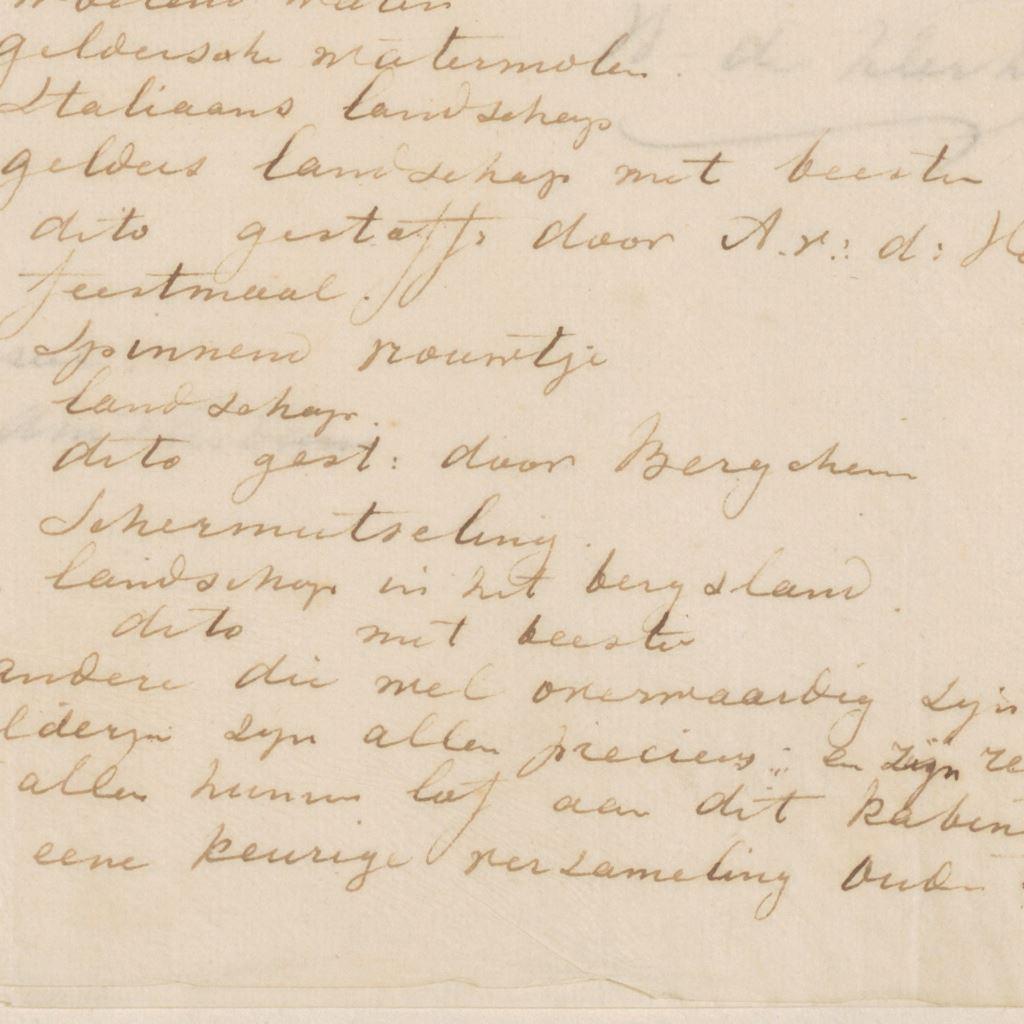 geldersche watermolen.
Italiaans landschap
gelders landschap met beesten
dito gestoff: door A.v.: d:
feestmaal.
Spinnend vrouwtje
landschap.
dito gest: door Bergchem
Schermutseling.
landschap in het bergsland.
dito met beesten
andere die wel overwaardig zijn
zyn allen precieus; en zijn
allen hunnen lof aan dit kabin
eene keurige verzameling oude